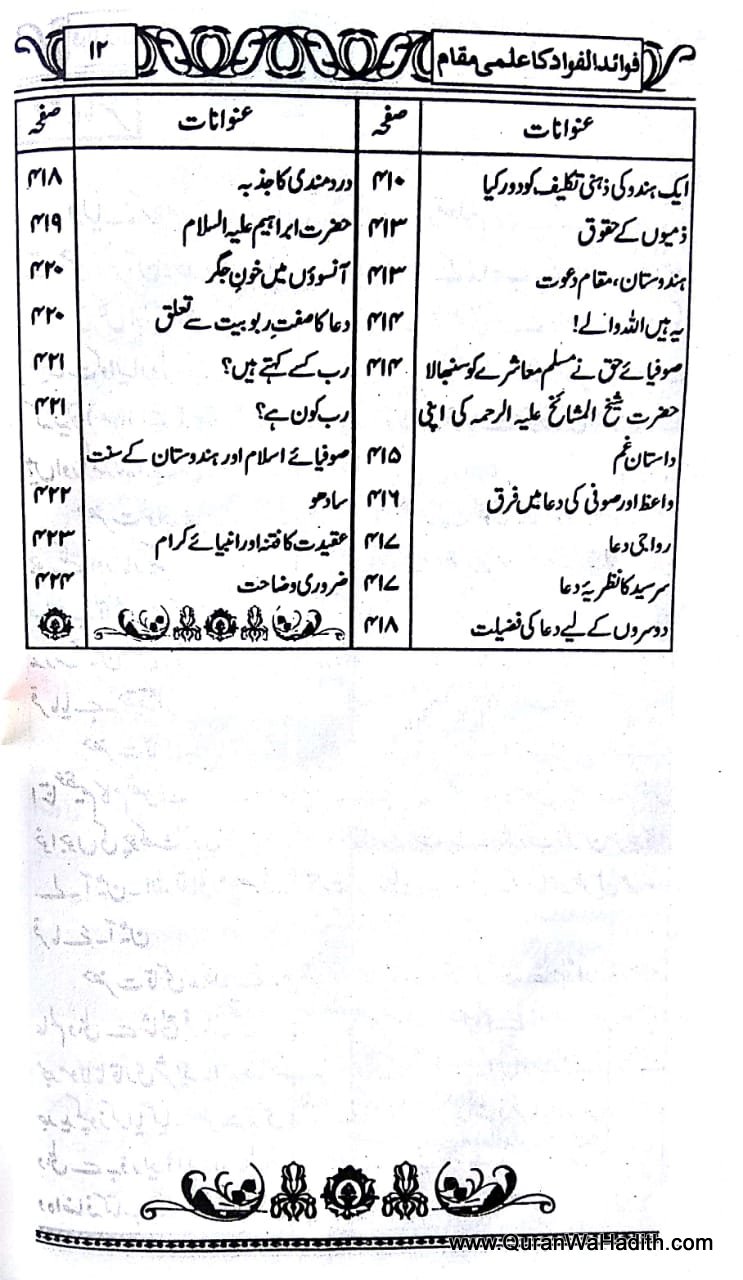 فوائد الفواد کا علمی مقام ۱۲
عنوانات صفحہ
ایک ہندو کی ذہنی تکلیف کو دور کیا ۴۱۰
ذمیوں کے حقوق ۴۱۳
ہندوستان، مقام دعوت ۴۱۳
یہ ہیں اللہ والے! ۴۱۴
صوفیائے حق نے مسلم معاشرے کو سنبھالا ۴۱۴
حضرت شیخ المشائخ علیہ الرحمہ کی اپنی
داستان غم ۴۱۵
واعظ اور صوفی کی دعا میں فرق ۴۱۶
رواجی دعا ۴۱۷
سرسید کا نظریۂ دعا ۴۱۷
دوسروں کے لیے دعا کی فضیلت ۴۱۸
عنوانات صفحہ
درد مندی کا جذبہ ۴۱۸
حضرت ابراہیم علیہ السلام ۴۱۹
آنسوؤں میں خونِ جگر ۴۲۰
دعا کا صفتِ ربوبیت سے تعلق ۴۲۰
رب کسے کہتے ہیں؟ ۴۲۱
رب کون ہے؟ ۴۲۱
صوفیائے اسلام اور ہندوستان کے سنت
سادھو ۴۲۲
عقیدت کا فتنہ اور انبیائے کرام ۴۲۳
ضروری وضاحت ۴۲۴
www.QuranWaHadith.com